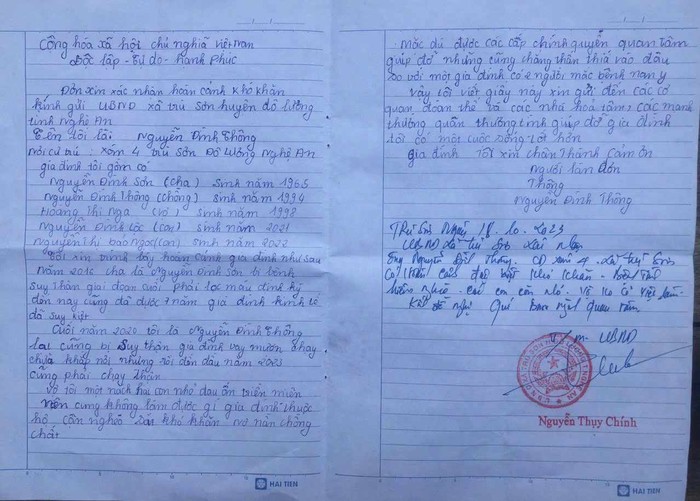 Cộng hóa xã hội chủ nghĩa việt nam
Độc lập - tự do - hanh phúc
Đơn xin xác nhân hoàn cảnh khó khăn
kính gửi UBND xã trù sơn huyên đô lương
tỉnh nghệ An
Tên tôi là: Nguyễn Đình Thông
nơi cư trú: xóm 4 trù sơn Đô Lương Nghệ An
gia đình tôi gồm có
Nguyễn Đình Sơn (cha) sinh năm 1965
Nguyễn Đình Thông (chồng) sinh năm 1994
Hoàng Thị Nga (vợ) sinh năm 1998
Nguyễn Đình Lộc (con) sinh năm 2021
nguyễn thị bảo ngọc (con) sinh năm 2022
Tôi xin trình bày hoàn cảnh gia đình như sau
Năm 2016 cha là Nguyễn Đình Sơn bị bệnh
suy thân giai đoan cuối phải lọc máu định kỳ
đến nay cũng đã được 7 năm gia đình kinh tế
đã suy kiệt
Cuối năm 2020 tôi là Nguyễn Đình Thông
lại cũng bị suy thân gia đình vay mươn chay
chưa khắp nơi nhưng rồi đến đầu năm 2023
cũng phải chay thân
Vợ tôi một nách hai con nhỏ đau ốm triền miên
nên cung không làm được gì gia đình thuộc
hộ cân nghèo khó khăn nơ nần chồng
chất
HAI TIEN
Mặc dù được các cấp chính quyền quan tâm
giúp đỡ nhưng cũng chẳng thấm thía vào đâu
so với một gia đình có 2 người mắc bệnh nan y
vây tôi viết giấy này xin gửi đến các cơ
quan, đoàn thể và các nhà hoả tâm, các manh
thường quân thương tình giúp đỡ gia đình
tôi có một cuộc sống tốt hơn
gia đình tôi xin chân thành cảm ơn
người làm đơn
Thông
Nguyễn Đình Thông
Trù Sơn Ngày 18.10.2023
UBND xã trù sơn xác nhận
Ông Nguyễn Đình Thông. CD xóm 4 xã trù sơn
Có Hoàn cảnh đặc biệt khó khăn
hiểm nghèo
Quý Ban quan tâm.
UBND
Nguyễn Thụy Chính
HAI TIEN